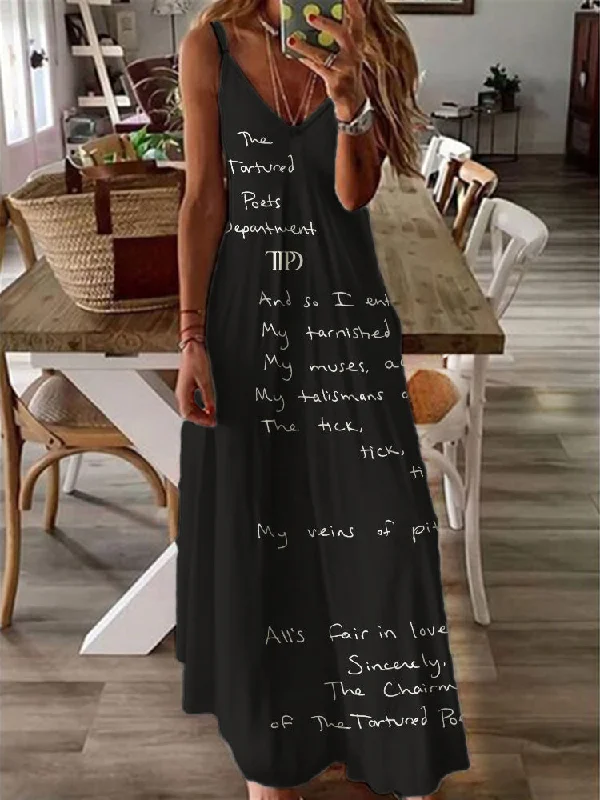 The
Tortured
Poets
Department
TTPD
And so I ent
My tarnished
My muses, a
My talismans
The tick,
tick,
ti
My veins of pit
All's fair in love
Sincerely,
The Chairm
of The Tortured Po